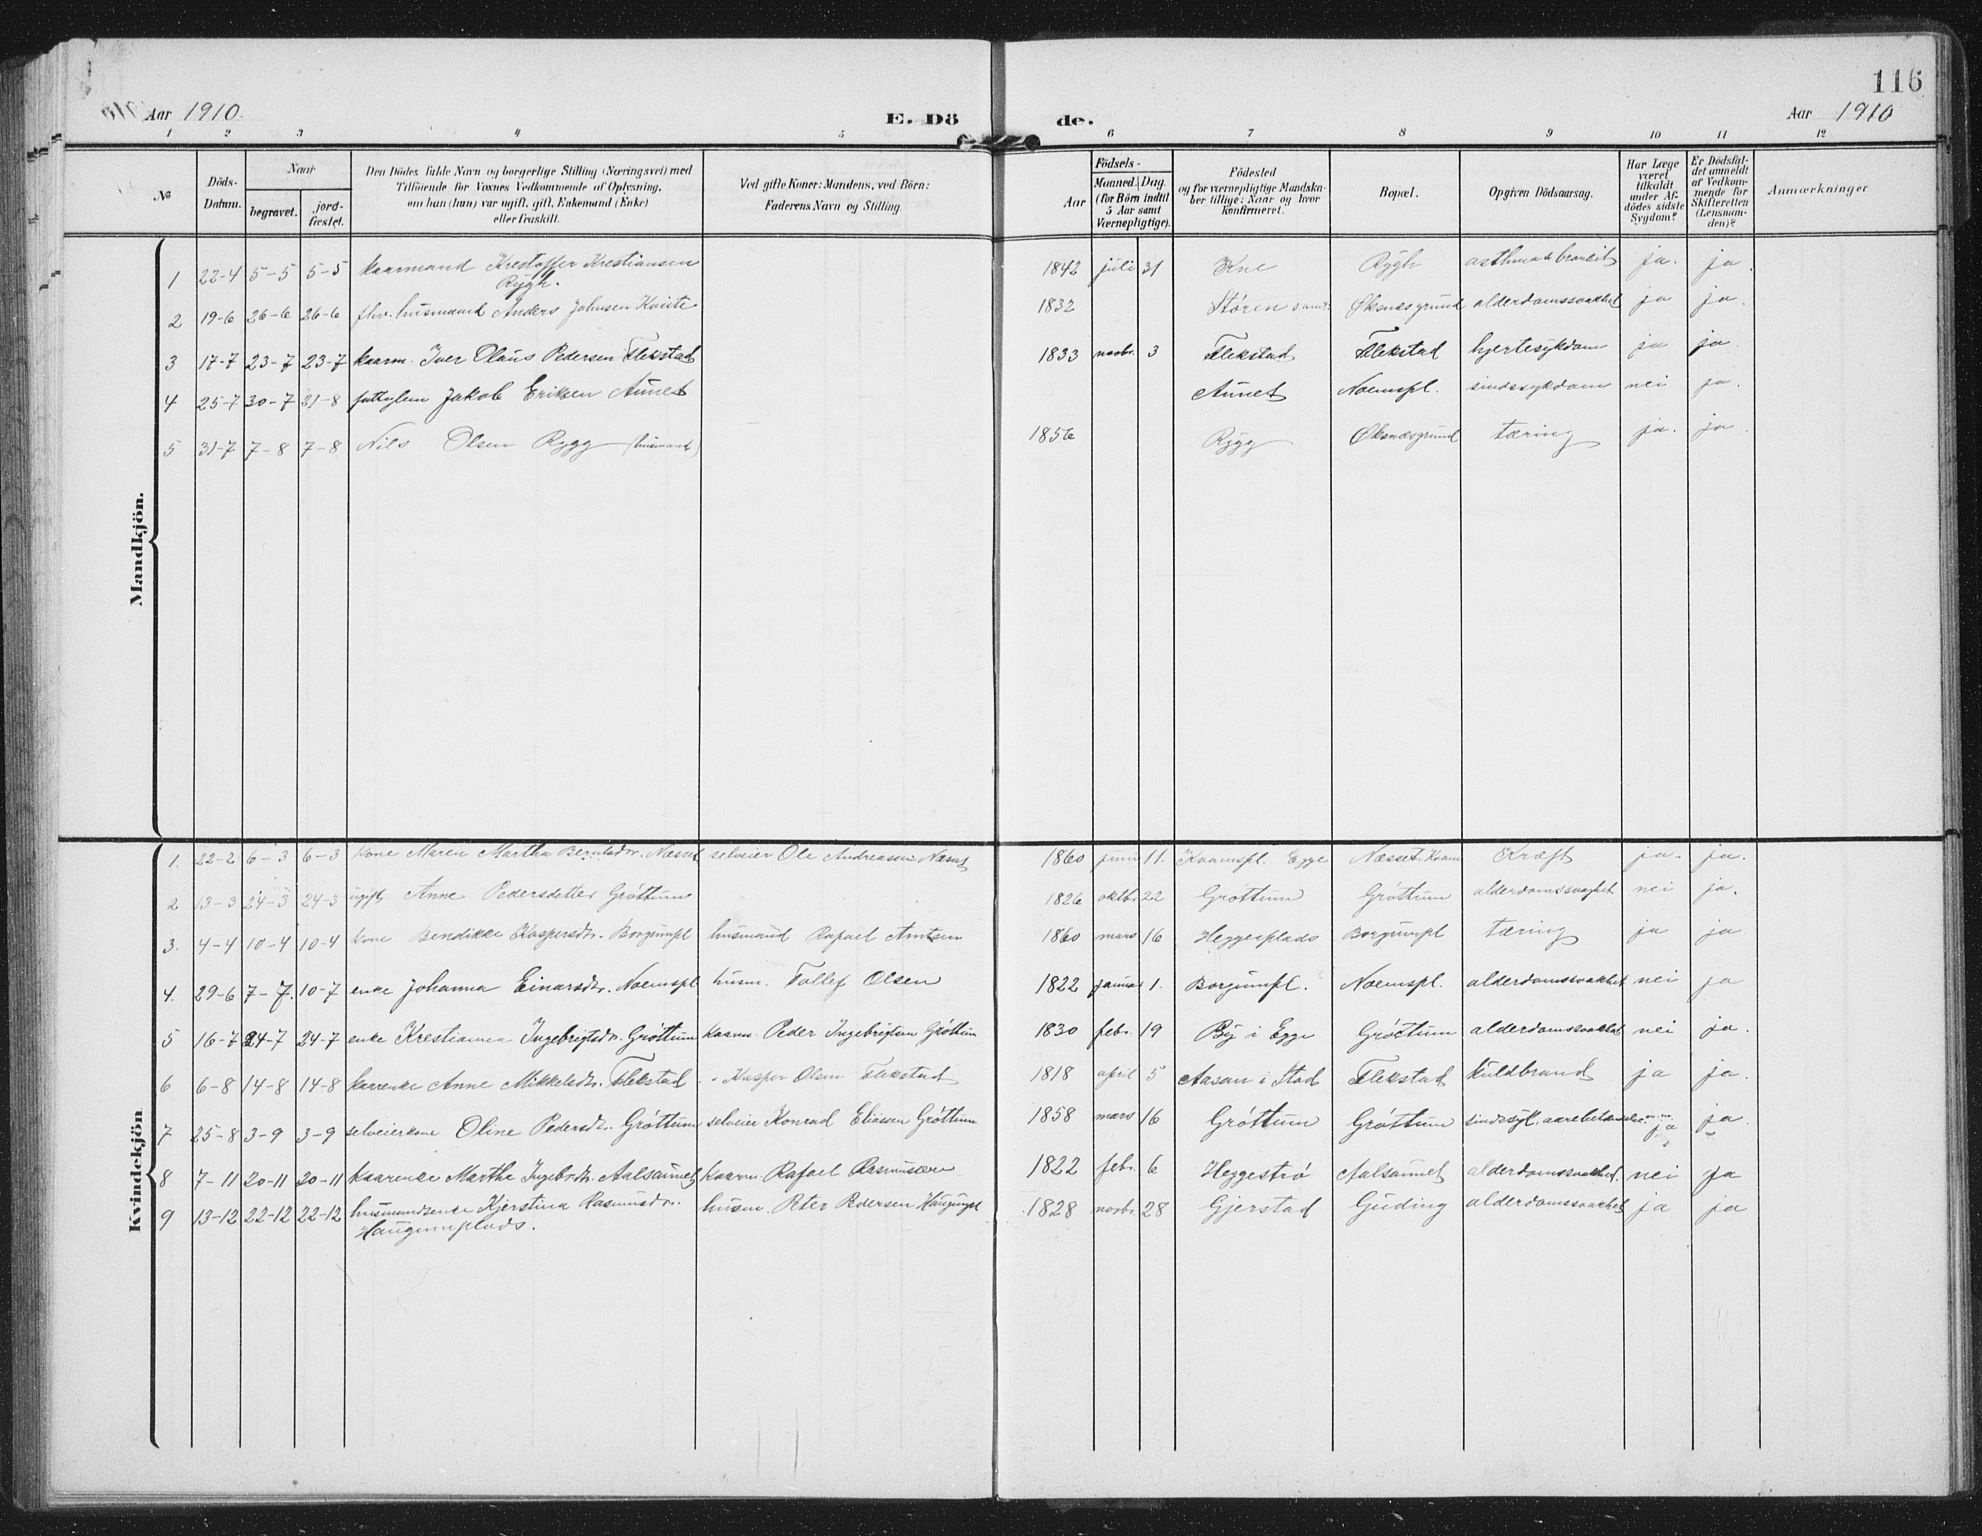 116
Aar 1910.
E. Dö
de.
Aar 1910
1 2 3 4 5 6 7 8 9 10 11 12
№
Döds-
Datum.
Naar
begravet.
jord-
fæstet.
Den Dödes fulde Navn og borgerlige Stilling (Næringsvei) med
Tilföiende for Voxnes Vedkommende af Oplysning,
om han (hun) var ugift, gift, Enkemand (Enke)
eller fraskilt.
Ved gifte Koner: Mandens, ved Börn:
Faderens Navn og Stilling.
Födsels-
Aar
Maaned. Dag.
(for Börn indtil
5 Aar samt
Værnepligtige).
Födested
og for værnepligtige Mandska-
ber tillige: Naar og hvor
konfirmeret.
Bopæl.
Opgiven Dödsaarsag.
Har Læge
været
tilkaldt
under Af-
dödes sidste
Sygdom?
Er Dödsfal-
det anmeldt
af Vedkom-
mende for
Skifteretten
(Lensman-
den)?
Anmærkninger
Mandkjön.
1 22-4 5-5 5-5 kaarmand Krestoffer Krestiansen 1842 juli 31 Kne Rygh ja. ja.
Rygh.
2 19-6 26-6 26-6 fhv. husmand Anders Johnsen Kviste 1832 Støren Øksnæsgrund alderdomssvakhet ja ja.
3 17-7 23-7 23-7 kaarm. Iver Olaus Pedersen Flekstad 1833 novbr. 3 Flekstad Flekstad hjertesykdom ja ja.
4 25-7 30-7 21-8 fattiglem Jakob Eriksen Aunet Aunet Noemspl. sindssykdom nei ja.
5 31-7 7-8 7-8 Nils Olsen Rygg (husmand) 1856 Rygg Øksnæsgrund tæring ja. ja.
Kvindekjön
1. 22-2 6-3 6-3 kone Maren Martha Berntsdtr. Næsset selveier Ole Andreassen Næsset 1860 juni 11. Kvamspl. Egge Næsset. Kvam Kræft ja. ja.
2 13-3 24-3 24-3 ugift Anne Pedersdatter Grøttum 1826 oktbr. 22 Grøttum Grøttum alderdomssvaghet nei ja.
3. 4-4 10-4 10-4 kone Bendikke Kaspersdtr. Borgumpl husmand Rafael Arntsen 1860 mars 16 Heggesplads Borgumpl tæring ja ja
4. 29-6 7-7. 10-7 enke Johanna Einarsdtr. Noemspl husm. Tollef Olsen 1822 januar 1. Borgumpl. Noemspl. alderdomssvakhet nei ja
5 16-7 24-7 24-7 enke Krestianna Ingebrigtsdtr. Grøttum kaarm. Peder Ingebrigtsen Grøttum 1830 febr. 19 By i Egge Grøttum alderdomssvakhet nei ja.
6 6-8 14-8 14-8 karenke Anne Mikkelsdtr. Flekstad " Kasper Olsen Flekstad 1818 april 5 Aasan i Stod Flekstad kuldbrand ja ja.
7 25-8 3-9 3-9 selveierkone Oline Pedersdtr. Grøttum selveier Konrad Eliasen Grøttum 1858 mars 16 Grøttum Grøttum sindssyk. aarebetændelse ja ja.
8 7-11 20-11 20-11 kaarenke Marthe Ingebrdtr. Aalsaunet kaarm. Rafael Rasmussen 1822 febr. 6 Heggestrø Aalsaunet alderdomssvakhed. nei ja
9 13-12 22-12 22-12 husmandsenke Kjerstina Rasmusdtr. husm. Peter Pedersen Haugumpl 1828 novbr. 28 Gjerstad Guding alderdomssvakhet ja ja
Haugumplads.